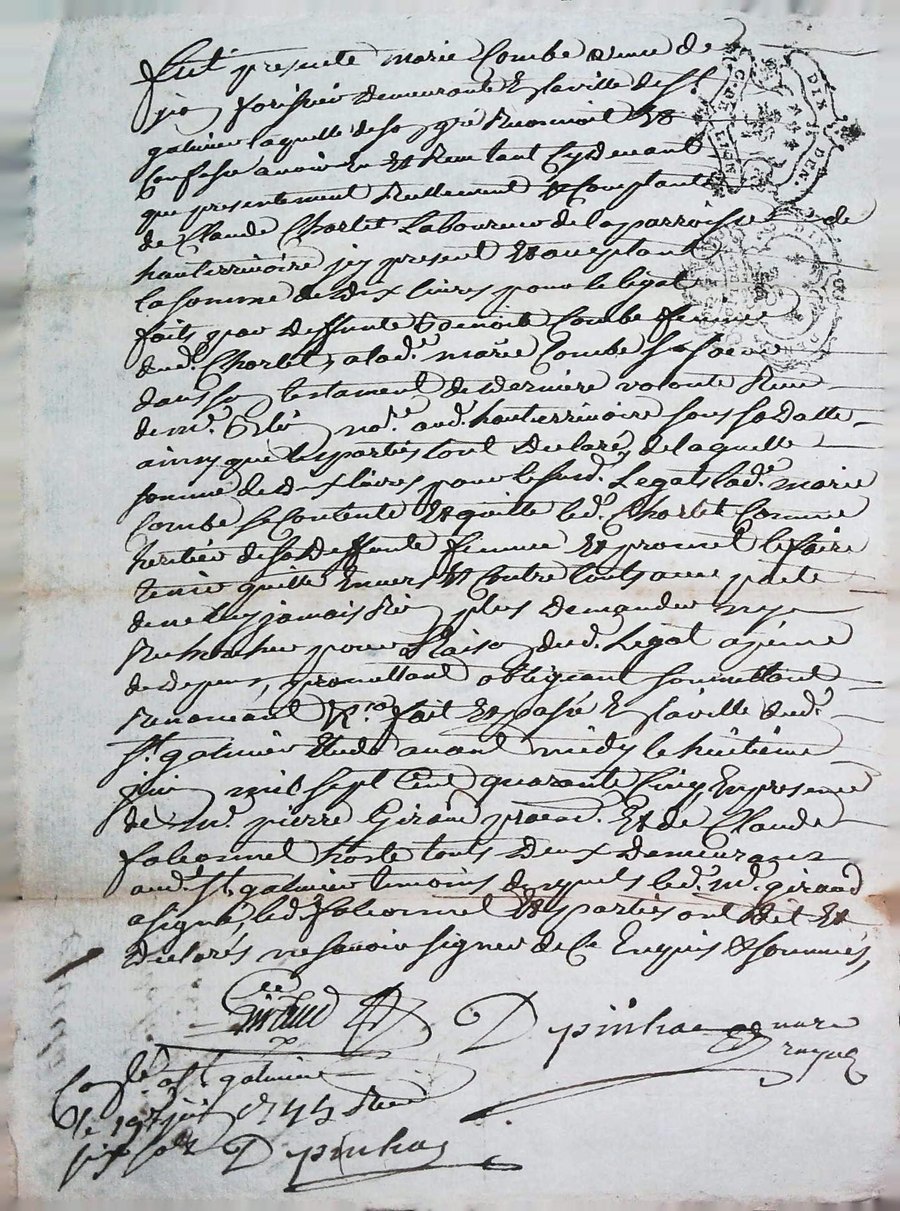 fut presente marie Combe veuve de
jean forissier demeurante En la ville de St
galmier laquelle de so gré Reconnoit Et
Confesse avoir Eu Et Reeu tant Cy devant
que presentement Reellement Et Comptant
de Claude Chorlet Laboureur de la parroisse de
hauterrivoire icy present Et acceptant
la somme de dix livres pour le legat
faits par deffunte Benoite Combe femme
dud. Chorlet, a lade. marie Combe sa soeur
dans so testament de derniere volonte Receu
de me. nore. aud. hauterrivoire sous sa datte
ainsy que les parties l'ont declarés, de laquelle
somme de dix livres pour le susd. Legats lad. marie
Combe se Contente Et quitte led. Chorlet Comme
heritier de sa deffunte femme Et promet le faire
tenir quitte Envers Et Contre touts avec pacte
de ne luy jamais Rie plus demander ny
Rechercher pour Raiso dud. Legat a peine
de depens, promettant obligeant soumettant
Renonceant &ra. fait Et passé En la ville dud.
St. galmier Etude avant midy le huitieme
juin mil sept Cent quarante Cinq En presence
de me. pierre Giraud procur. Et de Claude
foleonnel hoste touts deux demeurants
aud. St. galmier temoins desquels led. me. giraud
a signé, led. foleonnel Et parties ont dit Et
declarés ne savoir signer de Ce Enquis & sommés,
Giraud Depinhac nore
royal
Conlé a St. galmier
le 19e juin 1745 Reeu
six sols Depinhac
DIX DEN.
DIX